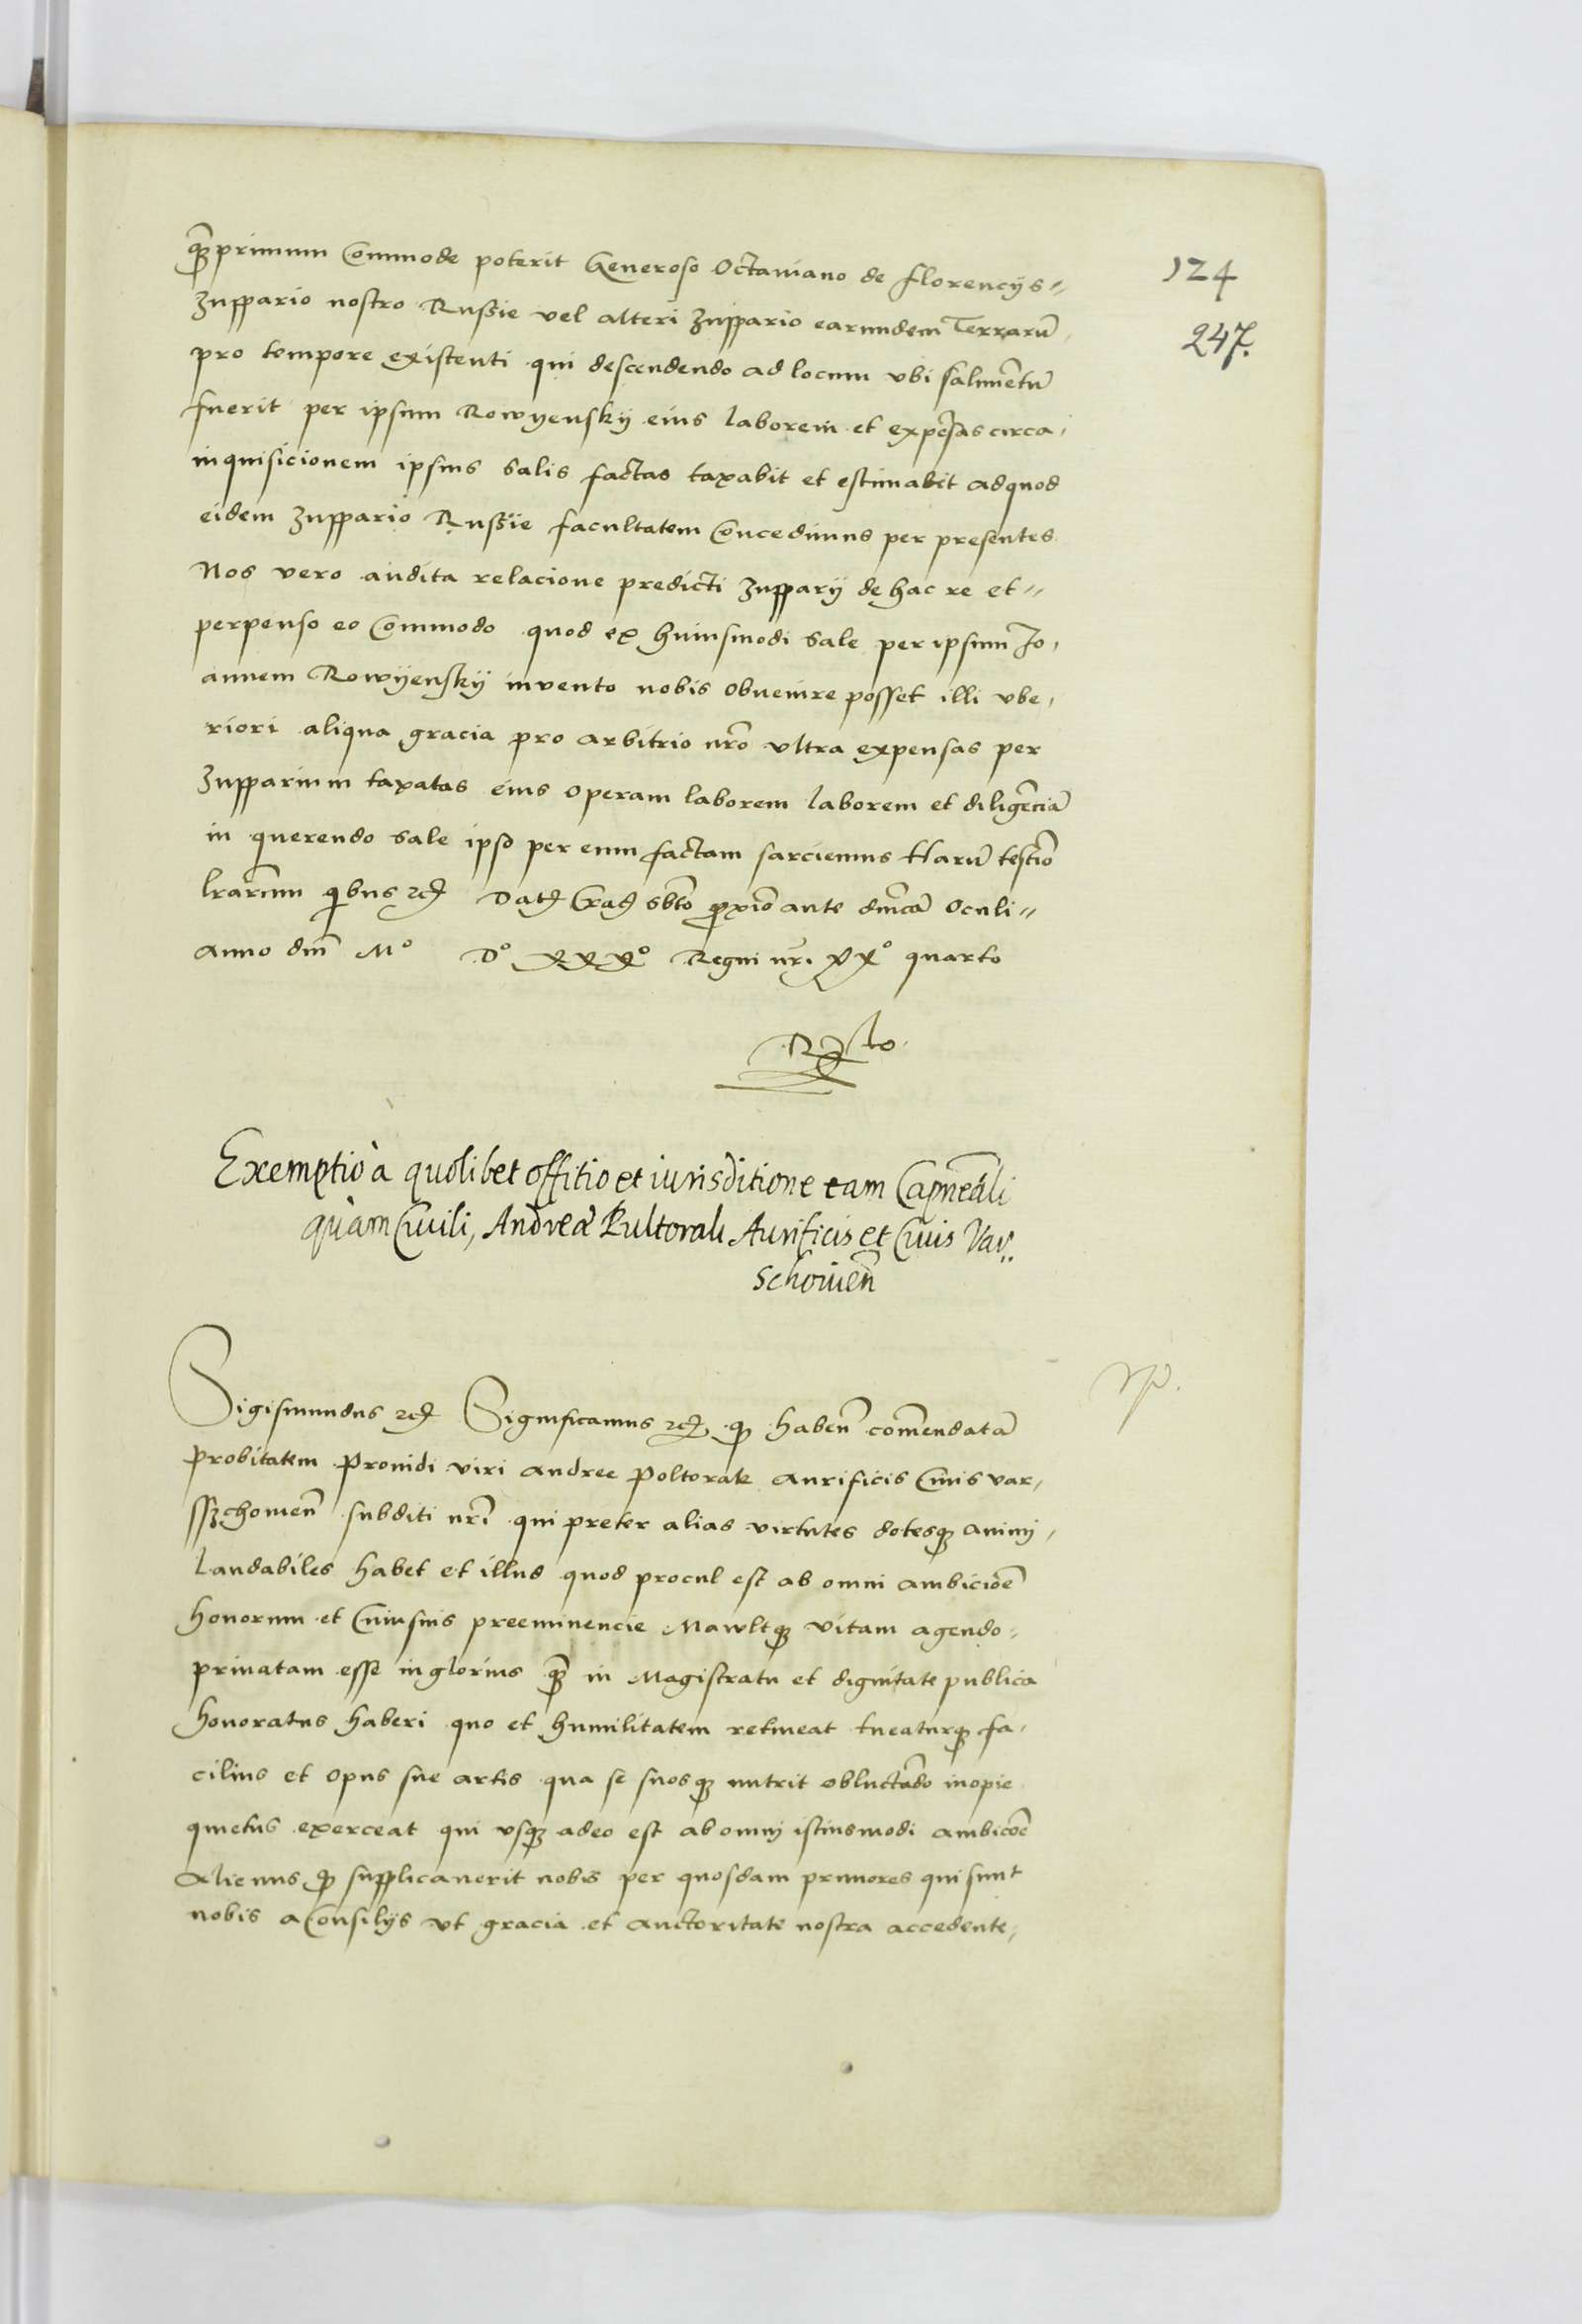 qꝫprimum Commode poterit Generoso Octaviano de florencijs
124
Zuppario nostro Russie vel alteri Zuppario earumdem Terrarū
247.
pro tempore existenti qui descendendo ad locum vbi sal inuentū
fuerit per ipsum Rowyenskij eius laborem et expēsas circa
inquisicionem ipsius salis factas taxabit et estimabit adquod
eidem Zuppario Russie facultatem Concedimus per presentes
Nos vero audita relacione predicti Zupparij de hac re et
perpenso eo Commodo quod ex huiusmodi sale per ipsum Jo,
annem Rowijenskij invento nobis obuenire posset illi vbe,
riori aliqua gracia pro arbitrio nr̄o vltra expensas per
Zupparium taxatas eius operam laborem laborem et diligēciā
in querendo sale ipso per eum factam sarciemus Harū testīo
lr̄arum qibus etc Dat Crac sbto proxīo ante dnīcā Oculi
Anno dnī M° D° XXX° Regni nrī XX° quarto
Exemptio à quolibet offitio et iurisditione tam Capneāli
quàm Civili, Andreæ Pultorak Aurificis et Civis Var
schovien̄
Sigismundus etc Significamus etc qꝫ haben̄ com̄endatā
probitatem Prouidi viri Andree Poltorak aurificis Ciuis var,
sszchouien̄ subditi nrī qui preter alias virtutes dotesqꝫ animi
laudabiles habet et illud quod procul est ab omni ambiciōe
honorum et Cuiusuis preeminencie Mawltqꝫ vitam agendo
priuatam esse inglorius qꝫ in Magistratu et dignitate publica
honoratus haberi quo et humilitatem retineat tueaturqꝫ fa,
cilius et opus sue artis qua se suosqꝫ nutrit obluctādo inopie
quietus exerceat qui vsqꝫ adeo est ab omni istiusmodi ambicōe
Alienus qꝫ supplicauerit nobis per quosdam primores qui sunt
nobis a Consilijs vt gracia et auctoritate nostra accedente,